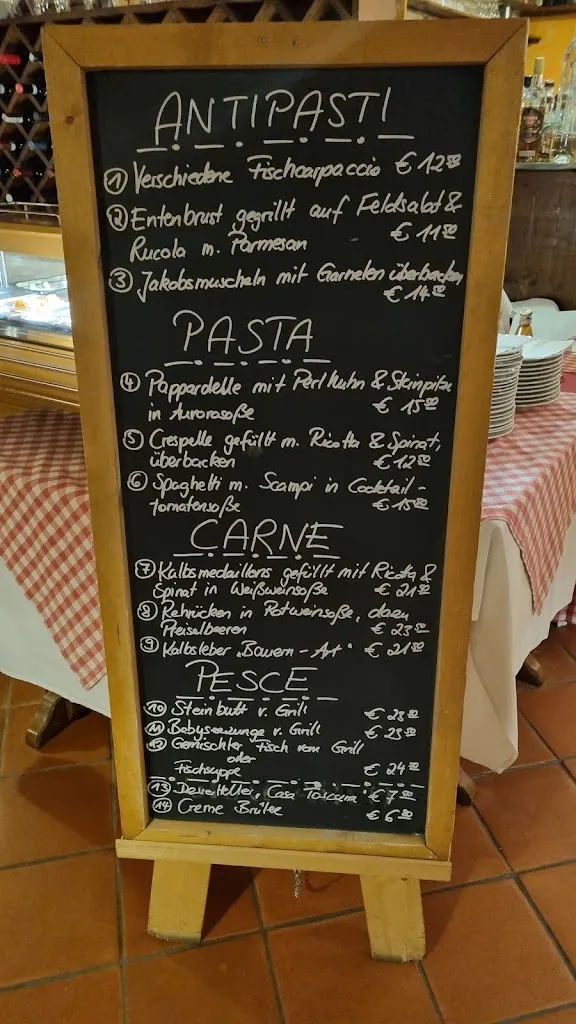 ANTIPASTI
① Verschiedene Fischcarpaccio € 12.50
② Entenbrust gegrillt auf Feldsalat &
Rucola m. Parmesan € 11.50
③ Jakobsmuscheln mit Garnelen überbacken
€ 14.50
PASTA
④ Pappardelle mit Perlhuhn & Steinpilze
in Aurorasoße € 15.50
⑤ Crespelle gefüllt m. Ricotta & Spinat,
überbacken € 12.50
⑥ Spaghetti m. Scampi in Cocktail-
tomatensoße € 15.00
CARNE
⑦ Kalbsmedaillons gefüllt mit Ricotta &
Spinat in Weißweinsoße € 21.50
⑧ Rehrücken in Rotweinsoße, dazu
Preiselbeeren € 23.50
⑨ Kalbsleber "Bauern-Art" € 21.50
PESCE
⑩ Steinbutt v. Grill €
⑪ Babyseezunge v. Grill €
⑫ Gemischter Fisch vom Grill
oder
Fischsuppe € 24.00
⑬ Dessertteller, Casa Toscana € 7.50
⑭ Creme Brûlee € 6.50